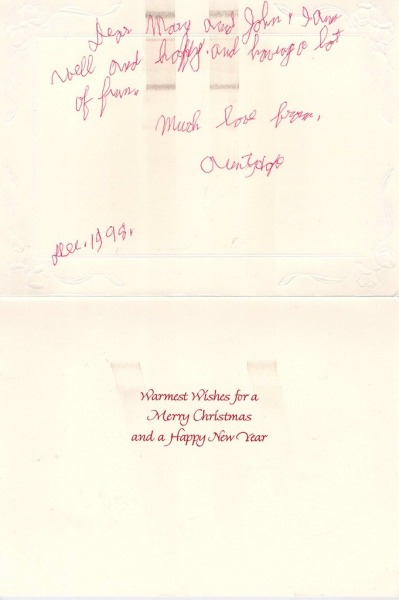 Dear Mary and John, I am
well and happy. and having a lot
of fun.
Much love from,
Aunty Hope
Dec. 1998.
Warmest Wishes for a
Merry Christmas
and a Happy New Year